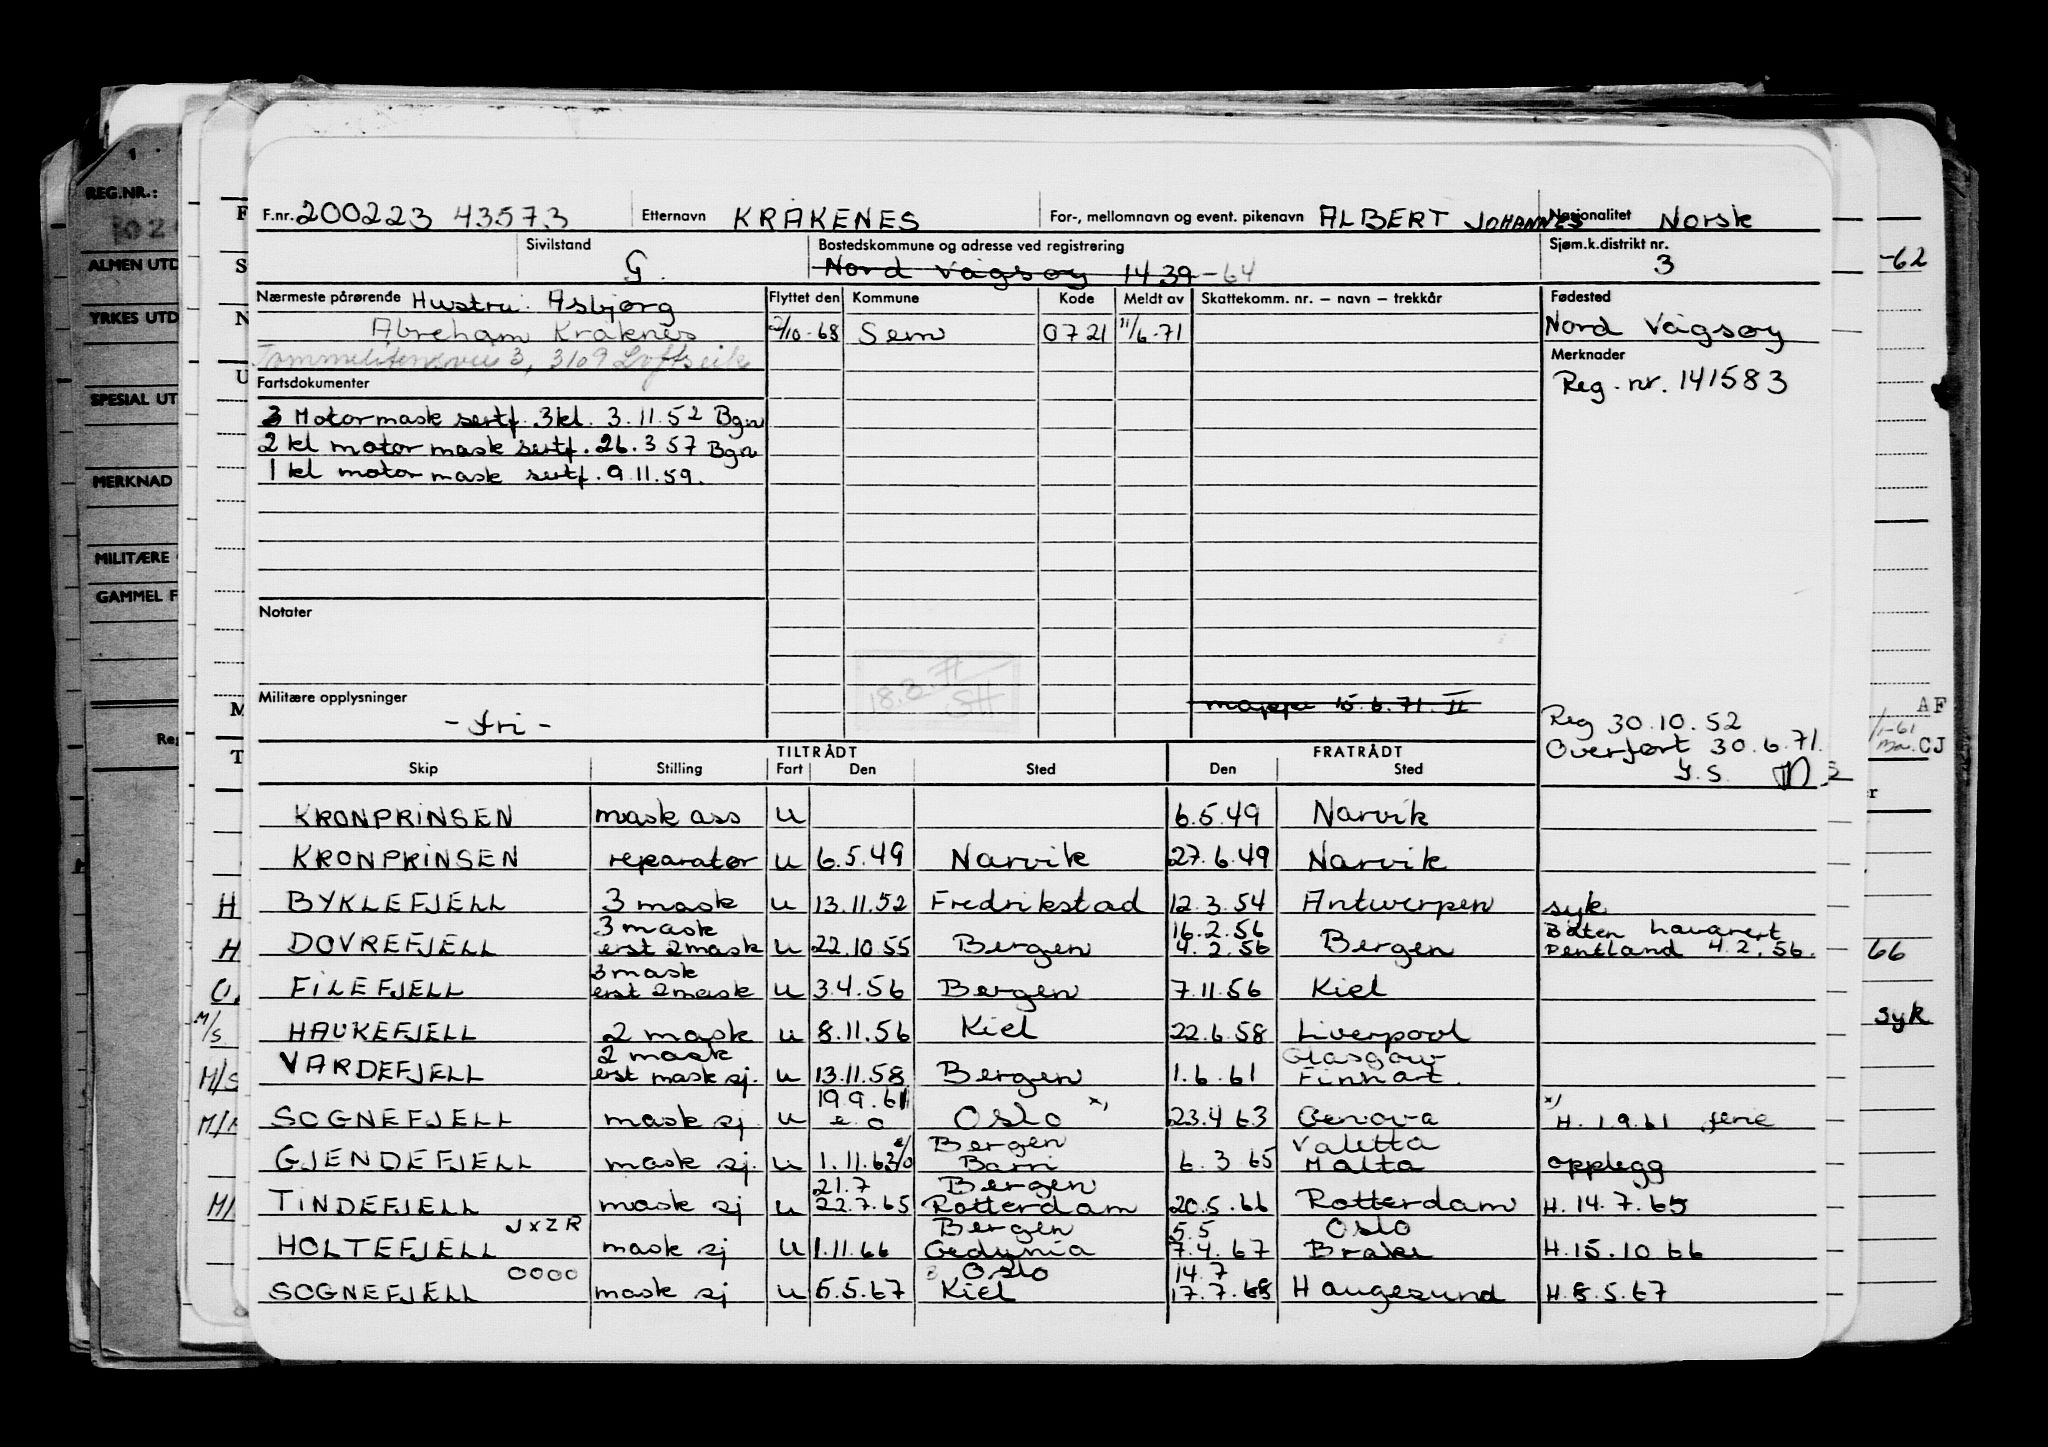 F.nr. 200223 43573 Etternavn KRÅKENES For-, mellomnavn og event. pikenavn ALBERT JOHANNES Nasjonalitet Norsk
Sivilstand G. Bostedskommune og adresse ved registrering Nord Vågsøy 1439-64 Sjøm.k.distrikt nr. 3
Nærmeste pårørende Hustru: Asbjørg
Abreham Kraknes
3, 3109
Flyttet den Kommune Kode Meldt av Skattekomm. nr. – navn – trekkår
2/10-68 Sem 0721 11/6-71
Fødested
Nord Vågsøy
Merknader
Reg. nr. 141583
Fartsdokumenter
3 Motormask sertf. 3kl. 3.11.52 Bgn
2 kl motor mask sertf. 26.3 57 Bgn
1 kl motor mask sertf. 9.11.59.
Notater
18.2.71
SH
Militære opplysninger
- fri -
mappe 15.6.71. II
Reg 30.10.52
Overført 30.6.71.
Y.S.
TILTRÅDT FRATRÅDT
Skip Stilling Fart Den Sted Den Sted
KRONPRINSEN mask ass u 6.5.49 Narvik
KRONPRINSEN reparatør u 6.5.49 Narvik 27.6.49 Narvik
BYKLEFJELL 3 mask u 13.11.52 Fredrikstad 12.3.54 Antwerpen syk
3 mask 16.2.56 Båten havarert
DOVREFJELL erst 2mask u 22.10.55 Bergen 4.2.56 Bergen Pentland 4.2.56.
3 mask
FILEFJELL erst 2mask u 3.4.56 Bergen 7.11.56 Kiel
HAUKEFJELL 2 mask u 8.11.56 Kiel 22.6.58 Liverpool
2 mask Glasgow
VARDEFJELL erst mask sj. u 13.11.58 Bergen 1.6.61 Finnart.
19.9.61
SOGNEFJELL mask sj u e.o Oslo x) 23.4 63 Genova x) H. 1.9.61 ferie
Bergen Valetta
GJENDEFJELL mask sj. u 1.11.63 e/o Barri 6.3 65 Malta opplegg
21.7 Bergen
TINDEFJELL mask sj u 22.7.65 Rotterdam 20.5.66 Rotterdam H. 14.7.65
JXZR Bergen 5.5 Oslo
HOLTEFJELL mask sj u 1.11.66 Gedynia 7.4.67 Brake H.15.10 66
OOOO Oslo 14.7
SOGNEFJELL mask sj u 5.5.67 Kiel 17.7.68 Haugesund H.8.5.67
REG.NR.:
ALMEN UTD
YRKES UTD
SPESIAL UT
MERKNAD
MILITÆRE
GAMMEL F
Reg
F
S
N
U
M
T
H
H
M/S
M/S
-62
AF
CJ
66
syk